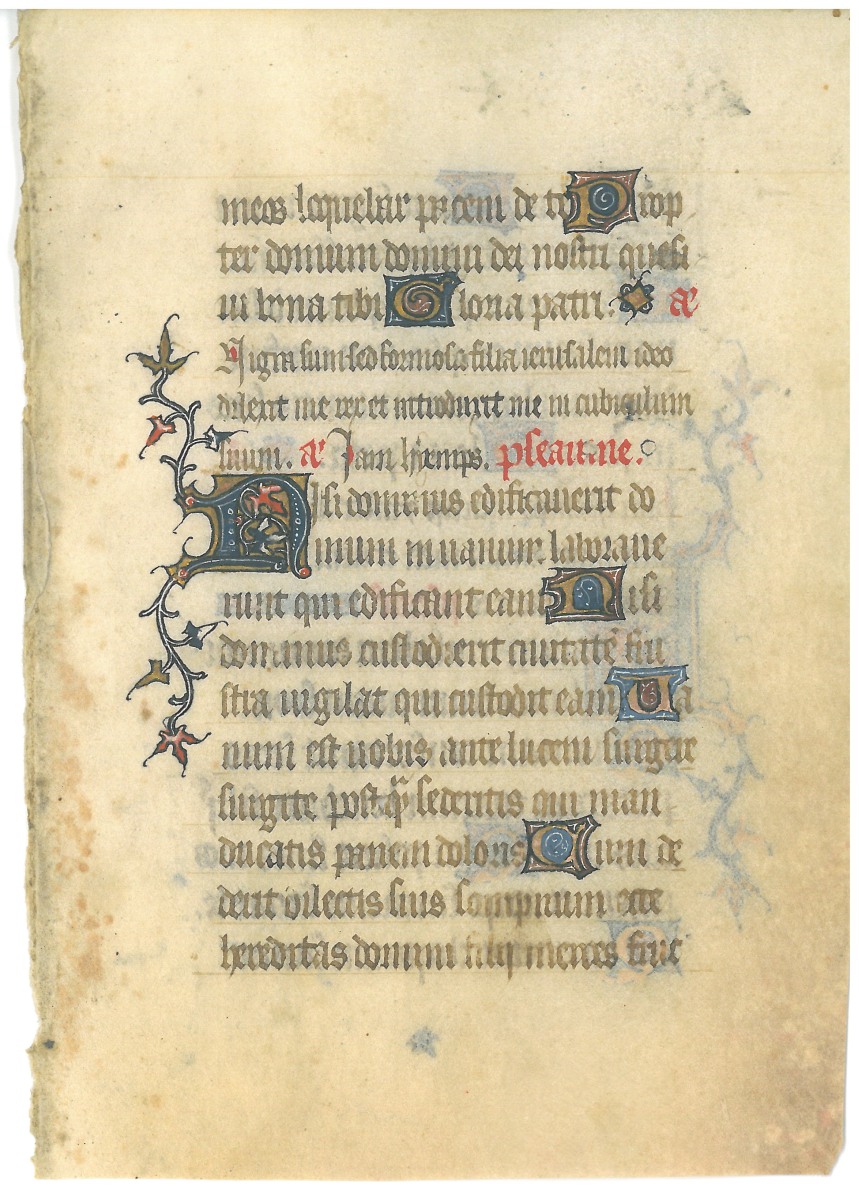 meos loquebar pacem de te Prop
ter domum domini dei nostri quesi
ui bona tibi Gloria patri. añ
Nigra sum sed formosa filia ierusalem ideo
dilexit me rex et introduxit me in cubiculum
suum. añ Jam hyemps. psealmꝰ.
Nisi dominus edificauerit do
mum in uanum laboraue
runt qui edificant eam Nisi
dominus custodierit ciuitatē fru
stra uigilat qui custodit eam Ua
num est uobis ante lucem surgere
surgite postq̄ȝ sederitis qui man
ducatis panem doloris Cum de
derit dilectis suis sompnum ecce
hereditas domini filij merces fruc